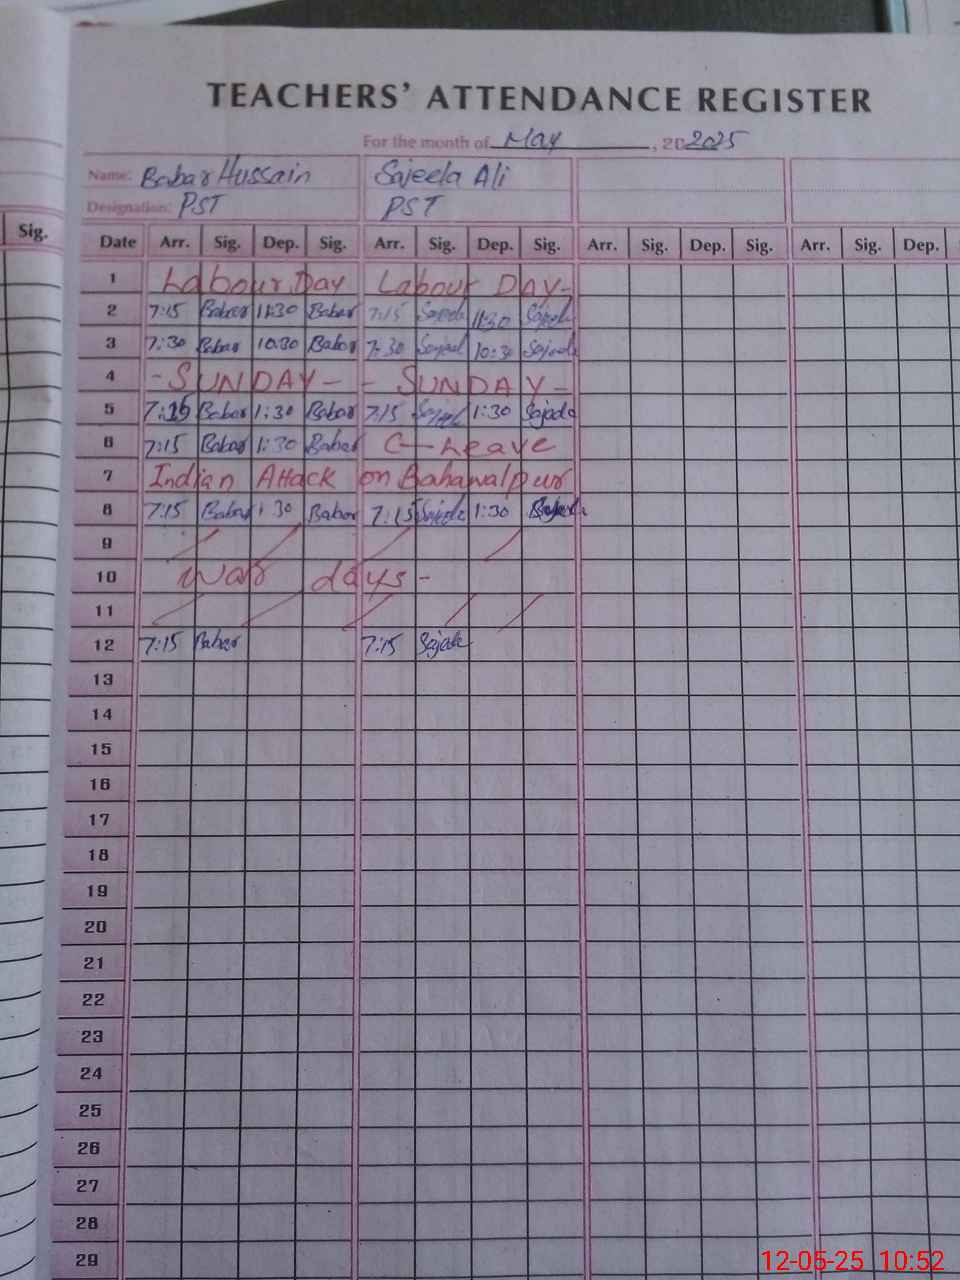 TEACHERS' ATTENDANCE REGISTER
For the month of May, 20 2025
Name: Babar Hussain Sajeela Ali
Designation: PST PST
Sig. Date Arr. Sig. Dep. Sig. Arr. Sig. Dep. Sig. Arr. Sig. Dep. Sig. Arr. Sig. Dep.
1 Labour Day Labour DAY-
2 7:15 Babar 11:30 Babar 7:15 Sajeela 11:30 Sajeela
3 7:30 Babar 10:30 Babar 7:30 Sajeel 10:30 Sajeela
4 -SUNDAY- - SUNDAY-
5 7:15 Babar 1:30 Babar 7:15 Sajeel 1:30 Sajada
6 7:15 Babar 1:30 Babar C-Leave
7 Indian Attack on Bahawalpur
8 7:15 Babar 1 30 Babar 7:15 Sajeela 1:30
9
10 War days-
11
12 7:15 Babar 7:15 Sajeela
13
14
15
16
17
18
19
20
21
22
23
24
25
26
27
28
29
12-05-25 10:52